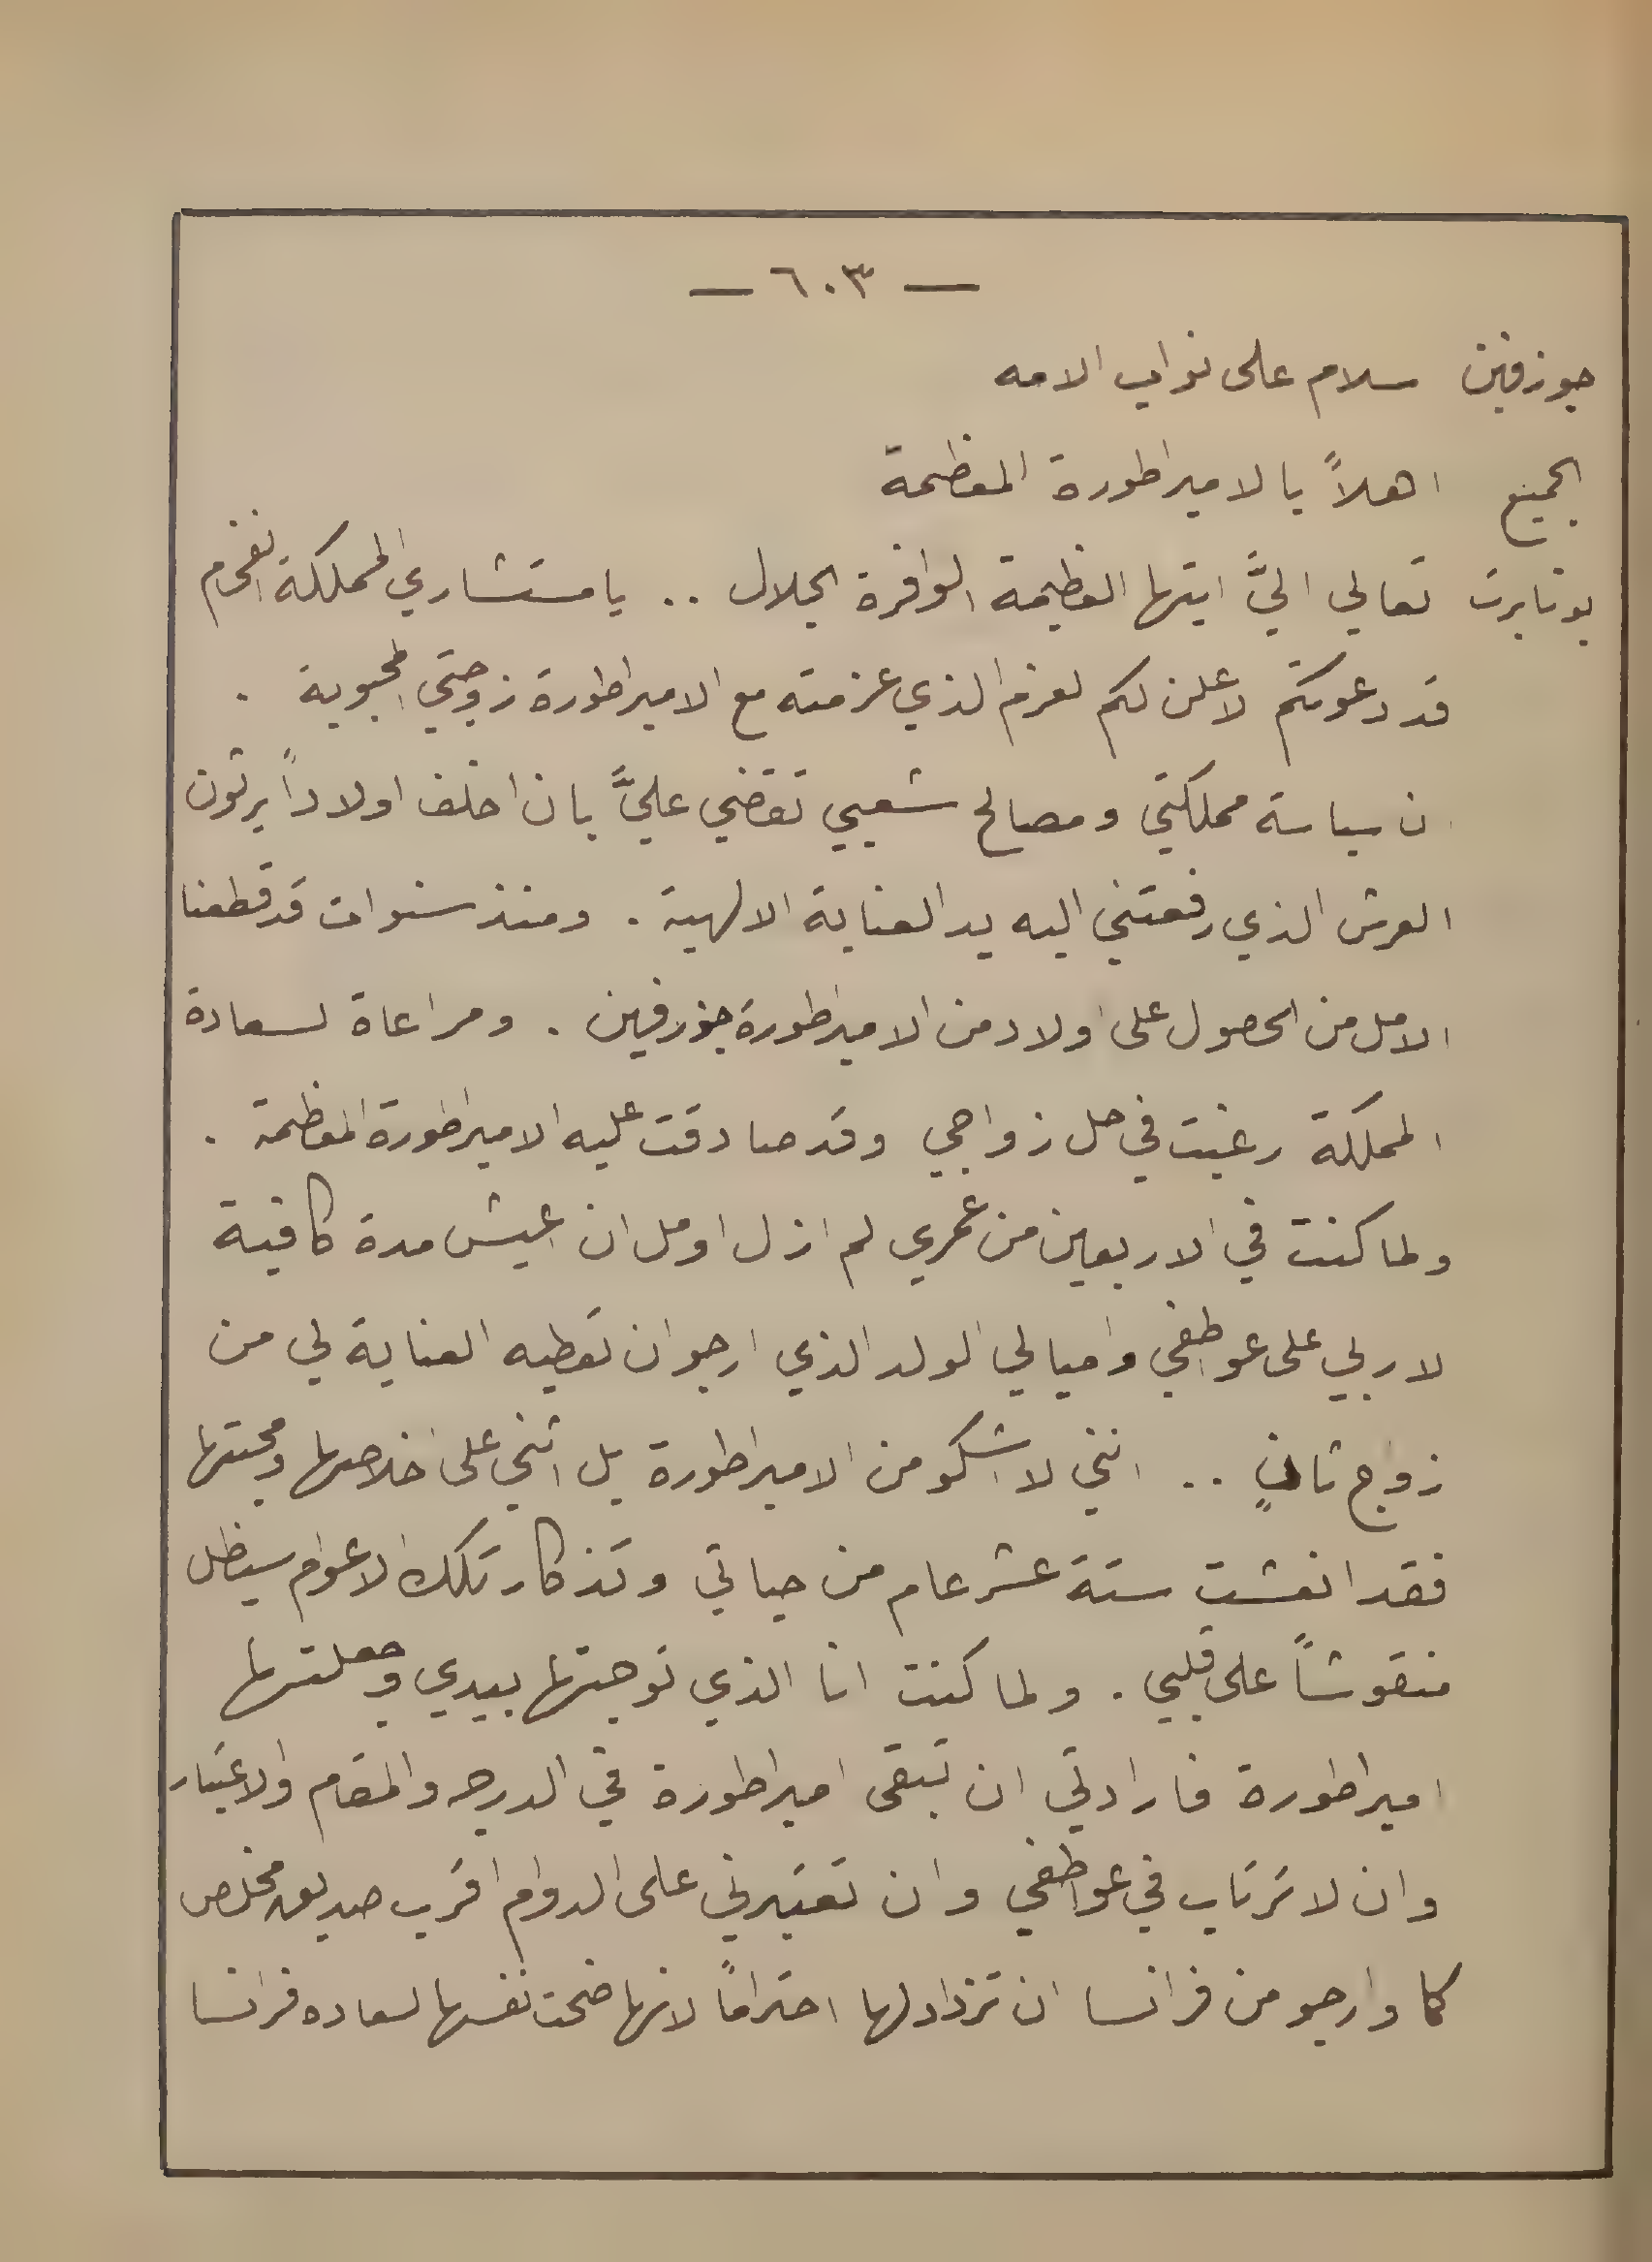 — ٦٠٣ —
جوزفين سلام على نواب الامه
الجميع اهلاً بالامبراطورة المعظمة
بونابرت تعالي اليَّ ايتها العظيمة الوافرة الجلال .. يا مستشاري المملكة الفخام
قد دعوتكم لاعلن لكم لعزم الذي عزمته مع الامبراطورة زوجتي المحبوبة .
ن سياسة مملكتي ومصالح شعبي تقضي عليَّ بان اخلف اولاداً يرثون
العرش الذي رفعتني اليه يد العناية الالهية . ومنذ سنوات قد قطعنا
الامل من الحصول على اولاد من الامبراطورة جوزفين . ومراعاة لسعادة
المملكة رغبت في حل زواجي وقد صادقت عليه الامبراطورة المعظمة .
ولما كنت في الاربعين من عمري لم ازل اومل ان اعيش مدة كافية
لاربي على عواطفي واميالي الولد الذي ارجو ان تعطيه العناية لي من
زواج ثانٍ .. انني لا اشكو من الامبراطورة بل اثني على اخلاصها ومحبتها
فقد انعشت ستة عشر عام من حياتي وتذكار تلك الاعوام سيظل
منقوشاً على قلبي . ولما كنت انا الذي توجتها بيدي وجعلتها
امبراطورة فارادتي ان تبقى امبراطورة في الدرجه والمقام والاعتبار
وان لا ترتاب في عواطفي وان تعتبرني على الدوام اقرب صديق مخلص
كما وارجو من فرانسا ان تزداد لها احتراماً لانها ضحت نفسها لسعاده فرانسا